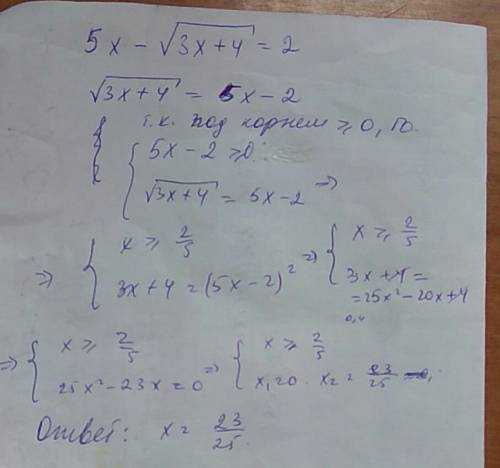 5x − √(3x+4) = 2
√(3x+4) = 5x − 2
т.к. под корнем ≥ 0, то.
{ 5x − 2 ≥ 0
√(3x+4) = 5x − 2 ⇒
⇒ { x ≥ 2/5 ⇒ { x ≥ 2/5
3x + 4 = (5x − 2)² 3x + 4 =
= 25x² − 20x + 4
0,4
⇒ { x ≥ 2/5 ⇒ { x ≥ 2/5
25x² − 23x = 0 x₁ = 0 x₂ = 23/25
Ответ: x = 23/25.